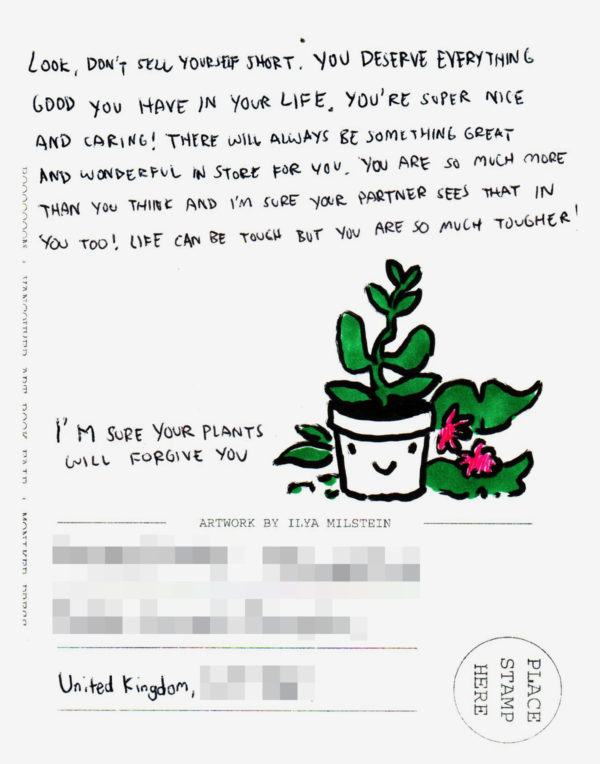 LOOK, DON'T SELL YOURSELF SHORT. YOU DESERVE EVERYTHING
GOOD YOU HAVE IN YOUR LIFE. YOU'RE SUPER NICE
AND CARING! THERE WILL ALWAYS BE SOMETHING GREAT
AND WONDERFUL IN STORE FOR YOU. YOU ARE SO MUCH MORE
THAN YOU THINK AND I'M SURE YOUR PARTNER SEES THAT IN
YOU TOO! LIFE CAN BE TOUGH BUT YOU ARE SO MUCH TOUGHER!
I'M SURE YOUR PLANTS
WILL FORGIVE YOU
ARTWORK BY ILYA MILSTEIN
United Kingdom,
PLACE
STAMP
HERE